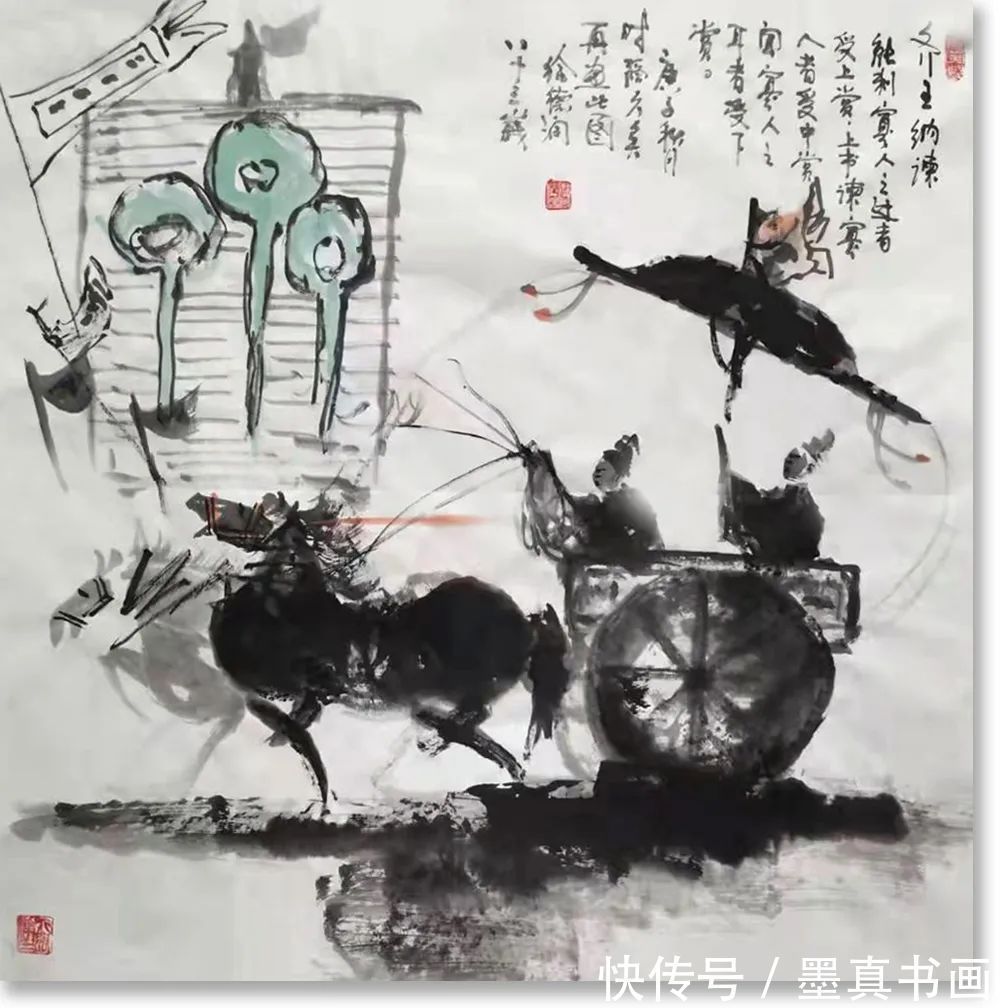 齐王纳谏
能刺寡人之过者
受上赏上书谏寡
人者受中赏
闻寡人之
耳者受下
赏
庚子秋月
时隔
再画此图
徐德润
八十三岁
快传号 / 墨真书画